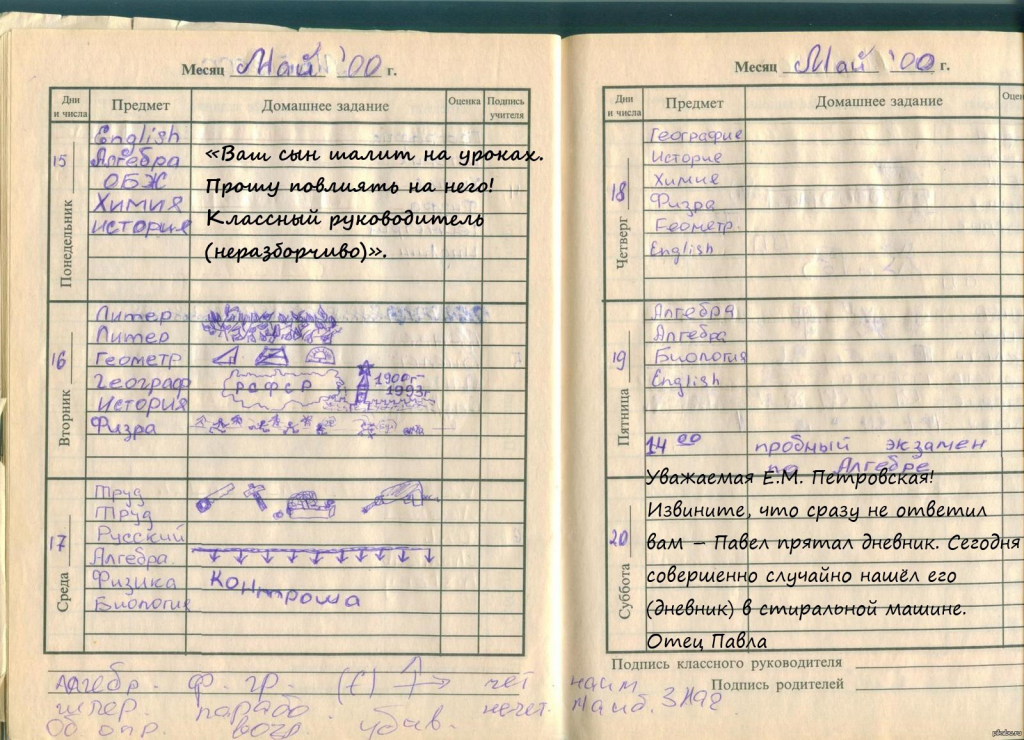 Месяц Май '00 г.
Дни и числа Предмет Домашнее задание Оценка Подпись учителя
15 Понедельник
English
Алгебра
ОБЖ
Химия
история
«Ваш сын шалит на уроках.
Прошу повлиять на него!
Классный руководитель
(неразборчиво)».
16 Вторник
Литер
Литер
Геометр
Географ
История
Физра
РСФСР
1900г
1993г
17 Среда
Труд
Труд
Русский
Алгебра
Физика Контроша
Биология
Алгебр. ф. гр. чёт. наим.
парабо. нечет. наиб. знач
Об опр. возр убыв.
Месяц Май '00 г.
Дни и числа Предмет Домашнее задание Оцен
18 Четверг
Географие
Историе
Химие
Физра
Геометр.
English
19 Пятница
Алгебра
Алгебра
Биология
English
14 00 пробный экзамен
по Алгебре
20 Суббота
Уважаемая Е.М. Петровская!
Извините, что сразу не ответил
вам – Павел прятал дневник. Сегодня
совершенно случайно нашёл его
(дневник) в стиральной машине.
Отец Павла
Подпись классного руководителя
Подпись родителей
pikabu.ru